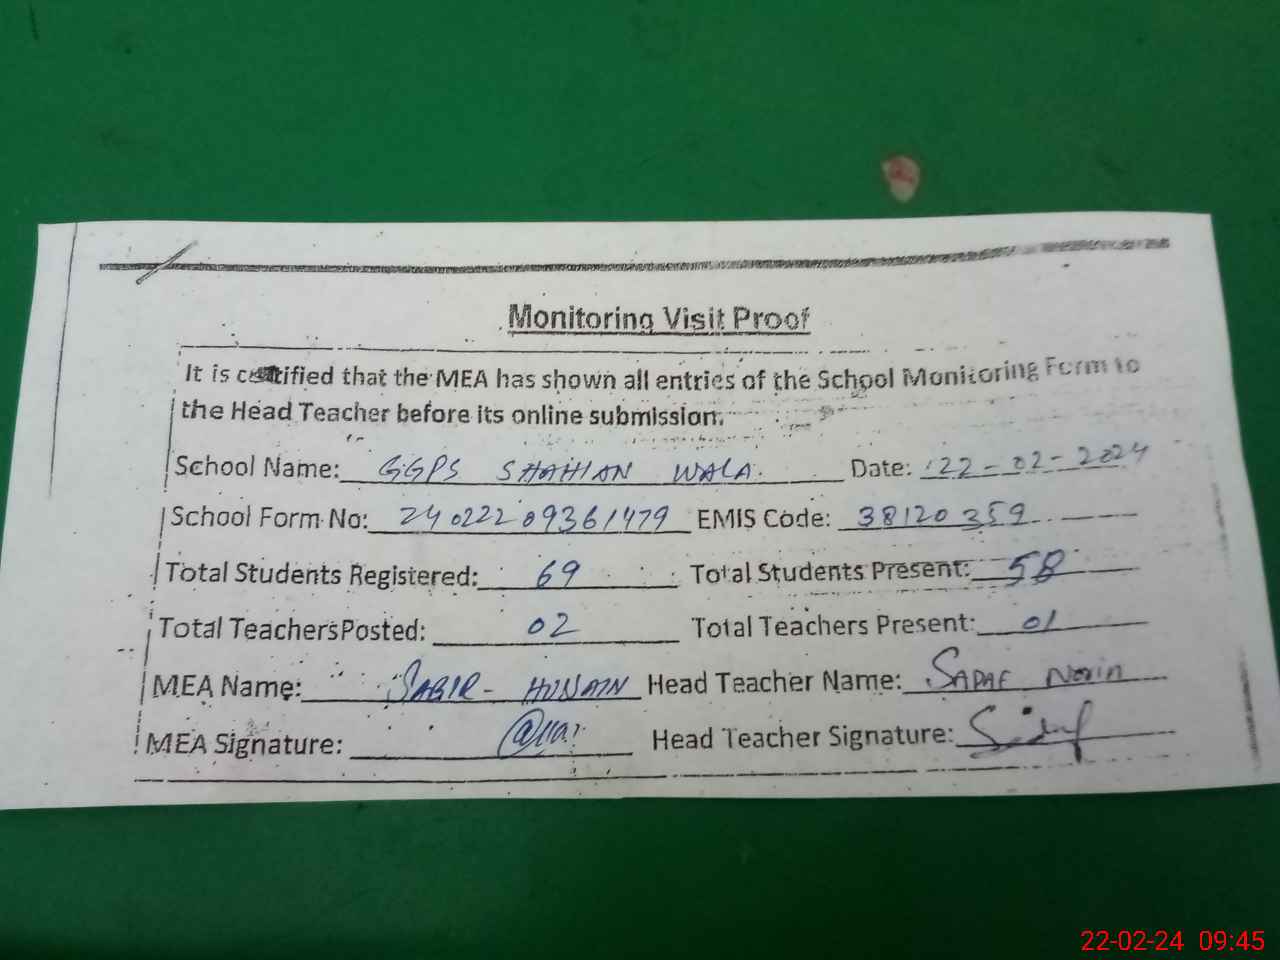 Monitoring Visit Proof
It is certified that the MEA has shown all entries of the School Monitoring Form to
the Head Teacher before its online submission.
School Name: GGPS SHAHIAN WALA. Date: 22-02-2024
School Form No: 24022209361479 EMIS Code: 38120359
Total Students Registered: 69 Total Students Present: 58
Total Teachers Posted: 02 Total Teachers Present: 01
MEA Name: SABIR - HUSSAIN Head Teacher Name: SADAF Norin
MEA Signature: Head Teacher Signature:
22-02-24 09:45